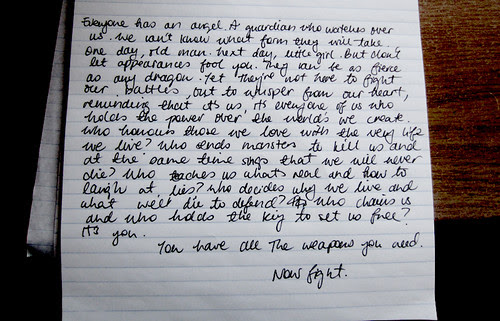 Everyone has an angel. A guardian who watches over
us. We can't know what form they will take.
One day, old man. Next day, little girl. But don't
let appearances fool you. They can be as fierce
as any dragon. Yet they're not here to fight
our battles, but to whisper from our heart,
reminding that it's us, it's everyone of us who
holds the power over the world's we create.
Who honours those we love with the very life
we live? Who sends monsters to kill us and
at the same time sings that we will never
die? Who teaches us what's real and how to
laugh at lies? Who decides why we live and
what we'll die to defend? Who chains us
and who holds the key to set us free?
It's you.
You have all the weapons you need.
Now fight.